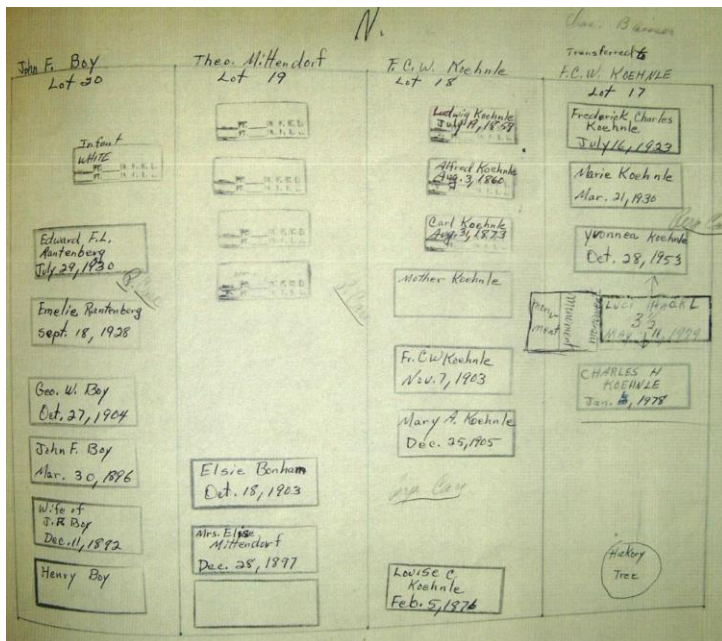 N.
John F. Boy
Lot 20
Infant
WHITE
Edward F.L.
Rantenberg
July 29, 1930
Emelie Rantenberg
Sept. 18, 1928
Geo. W. Boy
Oct. 27, 1904
John F. Boy
Mar. 30, 1896
Wife of
J.F. Boy
Dec. 11, 1892
Henry Boy
Theo. Mittendorf
Lot 19
Elsie Bonham
Oct. 18, 1903
Mrs. Elise
Mittendorf
Dec. 28, 1897
F.C.W. Koehnle
Lot 18
Ludwig Koehnle
July 19, 1859
Alfred Koehnle
Aug. 3, 1860
Carl Koehnle
Aug. 31, 1873
Mother Koehnle
Fr. C.W Koehnle
Nov. 7, 1903
Mary A. Koehnle
Dec. 25, 1905
Louise C.
Koehnle
Feb. 5, 1876
Transferred to
F.C.W. KOEHNLE
Lot 17
Frederick Charles
Koehnle
July 16, 1923
Marie Koehnle
Mar. 21, 1930
Yvonnea Koehnle
Oct. 28, 1953
monument
LUCI
3 1/2
MAY 1979
CHARLES H
KOEHNLE
Jan. 1978
Hickory
Tree